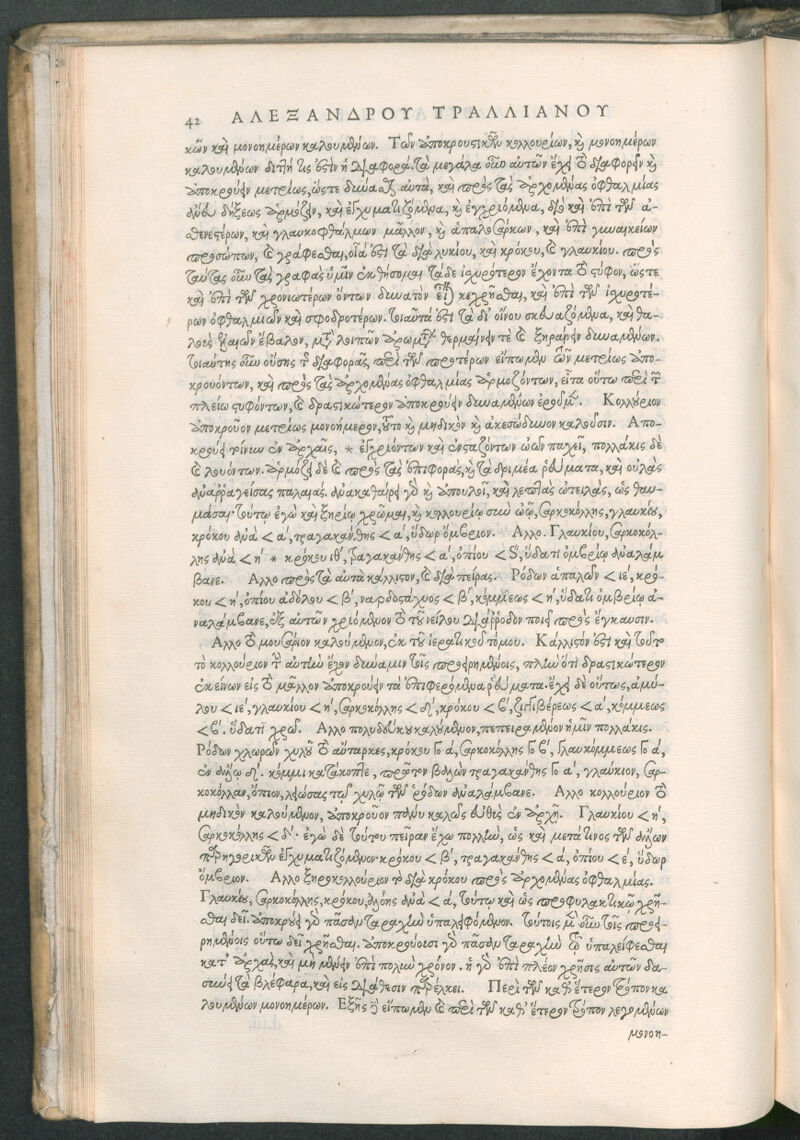 42 ΑΛΕΞΑΝΔΡΟΥ ΤΡΑΛΛΙΑΝΟΥ
κῶν καὶ μονοημέρων καλουμένων. Τῶν ἀποκρουστικῶν κολλουρίων, καὶ μονοημέρων
καλουμένων διττή τις ἐστὶν ἡ διαφορά. τὰ μεγάλα οὖν αὐτῶν ἔχει τὸ διαφορεῖν καὶ
ἀποκρούειν μετρίως, ὥστε δύναται αὐτὰ, καὶ πρὸς τὰς ἀρχομένας ὀφθαλμίας
ἄνευ δήξεως ἁρμόζειν, καὶ ἐγχυματιζόμενα, καὶ ἐγχριόμενα, διὸ καὶ ἐπὶ τῶν ἀ-
σθενεστέρων, καὶ γλαυκοφθάλμων μᾶλλον, καὶ ἁπαλοσάρκων, καὶ ἐπὶ γυναικείων
προσώπων, καὶ γράφεσθαι, οἷά ἐστι τὰ διὰ λυκίου, καὶ κρόκου, καὶ γλαυκίου. πρὸς
ταύτας οὖν τὰς γραφὰς ὑμῖν ἐκθήσομαι τὰ δὲ ἰσχυρότερον ἔχοντα τὸ στύφον, ὥστε
καὶ ἐπὶ τῶν χρονιωτέρων ὄντων δυνατὸν εἶναι κεχρῆσθαι, καὶ ἐπὶ τῶν ἰσχυροτέ-
ρων ὀφθαλμιῶν καὶ σφοδροτέρων. τοιαῦτα ἐστὶ τὰ δι' οἴνου σκευαζόμενα, καὶ θα-
λοὺς ἔβαλον, μετὰ λοιπῶν ἀρωμάτων θερμαίνειν τὲ καὶ ξηραίνειν δυναμένων.
τοιαύτης οὖν οὔσης τῆς διαφορᾶς, περὶ τῶν προτέρων εἴπωμεν τῶν μετρίως ἀπο-
κρουόντων, καὶ πρὸς τὰς ἀρχομένας ὀφθαλμίας ἁρμοζόντων, εἶτα οὕτω περὶ τῶν
πλείω στυφόντων, καὶ δραστικώτερον ἀποκρούειν δυναμένων ἐροῦμεν. Κολλύριον
ἀποκροῦον μετρίως μονοήμερον, τοῦτο καὶ μηδικὸν καὶ ἀκεσώδυνον καλοῦσιν. Απο-
κρούει ἐν ἀρχαῖς, * ἐγχριόντων καὶ ἐνσταζόντων ὠῶν παχεῖ, πολλάκις δὲ
καὶ λουόντων. ἁρμόζει δὲ καὶ πρὸς τὰς ἐπιφορὰς, καὶ τὰ δριμέα ῥεύματα, καὶ οὐλὰς
ἀναρραγείσας παλαιάς. ἀνακαθαίρει γὰρ καὶ ἀπουλοῖ, καὶ λεπτὰς ὠτειλὰς, ὡς θαυ-
μάσαι· τούτῳ ἐγὼ καὶ ξηρίῳ χρῶμαι, καὶ κολλουρίῳ σὺν ὠῷ, σαρκοκόλλης, γλαυκίου,
κρόκου ἀνὰ < α΄, τραγακάνθης < α΄, ὕδωρ ὄμβριον. Αλλο. Γλαυκίου, σαρκοκόλ-
λης ἀνὰ < η΄ * κρόκου ιθ΄, τραγακάνθης < α΄, ὀπίου < S, ὕδατι ὀμβρίῳ ἀναλάμ
βανε. Αλλο πρὸς τὰ αὐτὰ κάλλιστον, καὶ διὰ πείρας. Ρόδων ἁπαλῶν < ιε΄, κρό-
κου < η΄, ὀπίου ἀδόλου < β΄, ναρδοστάχυος < β΄, κόμμεως < η΄, ὕδατι ὀμβρίῳ ἀ-
ναλάμβανε, ἐξ αὐτῶν χριόμενον τὸ τοῦ νείλου διάρροδον ποιεῖ πρὸς ἔγκαυσιν.
Αλλο τὸ μουσάριον καλούμενον, ἐκ τοῦ ἱερατικοῦ τόμου. Κάλλιστόν ἐστι καὶ τοῦτο
τὸ κολλούριον τὴν αὐτὴν ἔχον δύναμιν τοῖς προειρημένοις, πλὴν ὅτι δραστικώτερον
ἐκείνων εἰς τὸ μᾶλλον ἀποκρούειν τὰ ἐπιφερόμενα ῥεύματα. ἔχει δὲ οὕτως, ἀμύ-
λου < ιε΄, γλαυκίου < η΄, σαρκοκόλλης < δ΄, κρόκου < ϛ΄, ζιγγιβέρεως < α΄, κόμμεως
< ϛ΄. ὕδατι χρῶ. Αλλο πολυδεύκου καλούμενον, πεπειραμένον ἡμῖν πολλάκις.
Ρόδων χλωρῶν χυλοῦ τὸ αὔταρκες, κρόκου Γο α΄, σαρκοκόλλης Γο ϛ΄, Γλαυκόμμεως Γο α΄,
ἐν ἄλλῳ δ΄. κόμμι κατάκοπτε, πρῶτον βδελλῶν τραγακάνθης Γο α΄, γλαύκιον, σαρ-
κοκόλλαν, ὄπιον, λειώσας τῷ χυλῷ τῶν ῥόδων ἀναλάμβανε. Αλλο κολλούριον τὸ
μηδικὸν καλούμενον, ἀποκροῦον πάνυ καλῶς εὐθὺς ἐν ἀρχῇ. Γλαυκίου < η΄,
σαρκοκόλλης < δ΄· ἐγὼ δὲ τούτου πεῖραν ἔχω πολλὴν, ὡς καὶ μετά τινος τῶν ἄλλων
παρηγορικῶν ἐγχυματιζόμενον· κρόκου < β΄, τραγακάνθης < α΄, ὀπίου < ε΄, ὕδωρ
ὄμβριον. Αλλο ξηροκολλούριον τὸ διὰ κρόκου πρὸς ἀρχομένας ὀφθαλμίας.
Γλαυκίου, σαρκοκόλλης, κρόκου, ἀλόης ἀνὰ < α΄, τούτῳ καὶ ὡς προφυλακτικῷ χρῆ-
σθαι δεῖ. ἀποκρούει γὰρ πᾶσαν ταραχὴν ὑπαλειφόμενον. τούτοις μὲν οὖν τοῖς προει-
ρημένοις οὕτω δεῖ χρῆσθαι. ἀποκρούουσι γὰρ πᾶσαν ταραχὴν τῷ ὑπαλείφεσθαι
κατ' ἀρχὰς, καὶ μὴ μένειν ἐπὶ πολὺν χρόνον. ἡ γὰρ ἐπὶ πλέον χρῆσις αὐτῶν δα-
σύνει τὰ βλέφαρα, καὶ εἰς διάθεσιν παρέλκει. Περὶ τῶν καθ' ἕτερον τρόπον κα
λουμένων μονοημέρων. Εξῆς δὲ εἴπωμεν καὶ περὶ τῶν καθ' ἕτερον τρόπον λεγομένων
μονοη-